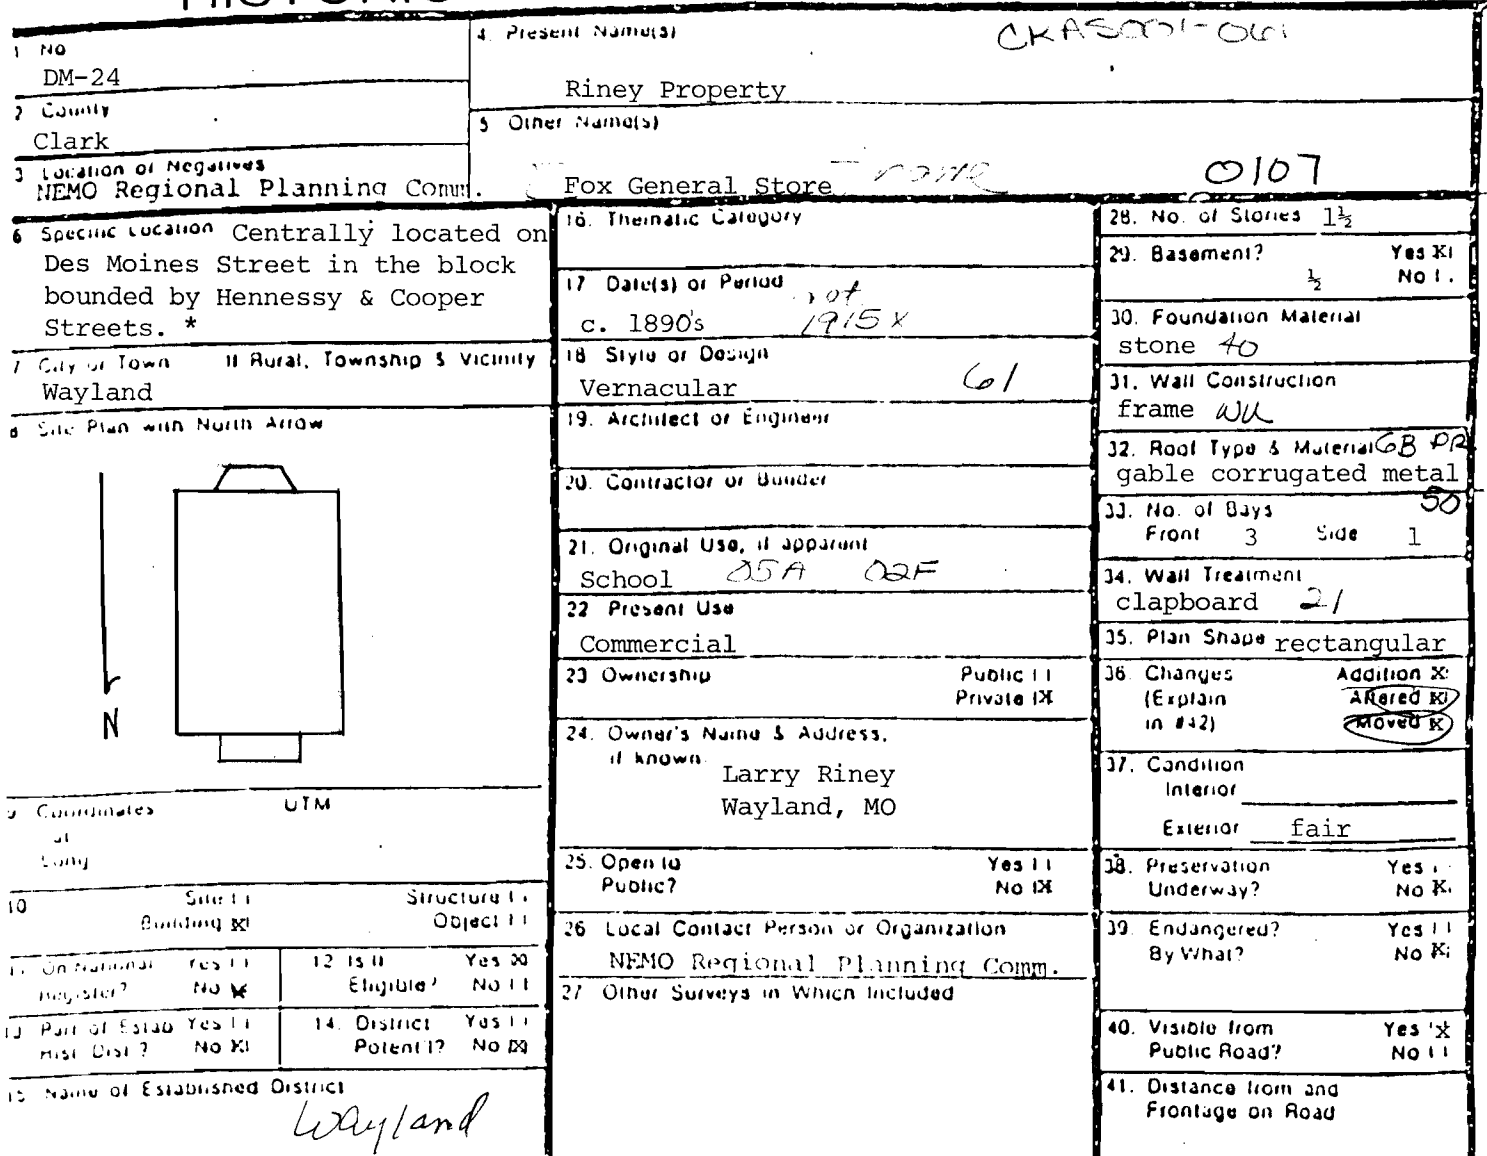 1 No
DM-24
2 County
Clark
3 Location of Negatives
NEMO Regional Planning Comm.
4. Present Name(s)
CKAS001-061
Riney Property
5 Other Name(s)
Fox General Store
0107
6 Specific Location Centrally located on
Des Moines Street in the block
bounded by Hennessy & Cooper
Streets. *
7 City or Town If Rural, Township & Vicinity
Wayland
8 Site Plan with North Arrow
N
9 Coordinates UTM
Lat
Long
10 Site Structure
Building X Object
11 On National Register? Yes No X
12 Is it Eligible? Yes X No
13 Part of Estab. Hist. Dist.? Yes No X
14. District Potent'l? Yes No X
15 Name of Established District
Wayland
16. Thematic Category
17 Date(s) or Period
c. 1890's rot 1915 x
18 Style or Design
Vernacular 61
19. Architect or Engineer
20. Contractor or Builder
21. Original Use, if apparent
School 05A 02F
22 Present Use
Commercial
23 Ownership Public
Private X
24. Owner's Name & Address,
if known
Larry Riney
Wayland, MO
25. Open to Yes
Public? No X
26 Local Contact Person or Organization
NEMO Regional Planning Comm.
27 Other Surveys in Which Included
28. No. of Stories 1½
29. Basement? Yes X
½ No
30. Foundation Material
stone 40
31. Wall Construction
frame WU
32. Roof Type & Material GB PR
gable corrugated metal
50
33. No. of Bays
Front 3 Side 1
34. Wall Treatment
clapboard 21
35. Plan Shape rectangular
36. Changes Addition X
(Explain Altered X
in #42) Moved X
37. Condition
Interior
Exterior fair
38. Preservation Yes
Underway? No X
39. Endangered? Yes
By What? No X
40. Visible from Yes X
Public Road? No
41. Distance from and
Frontage on Road